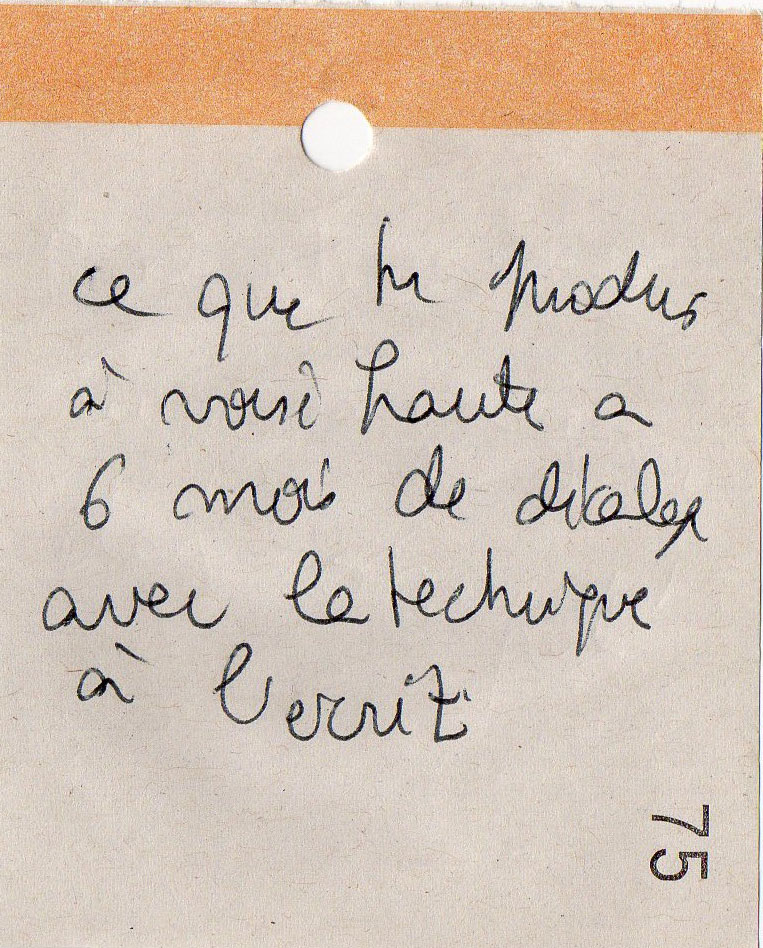 ce que tu produis
à voisè haute a
6 mois de décalage
avec la technique
à l'ecrit
75